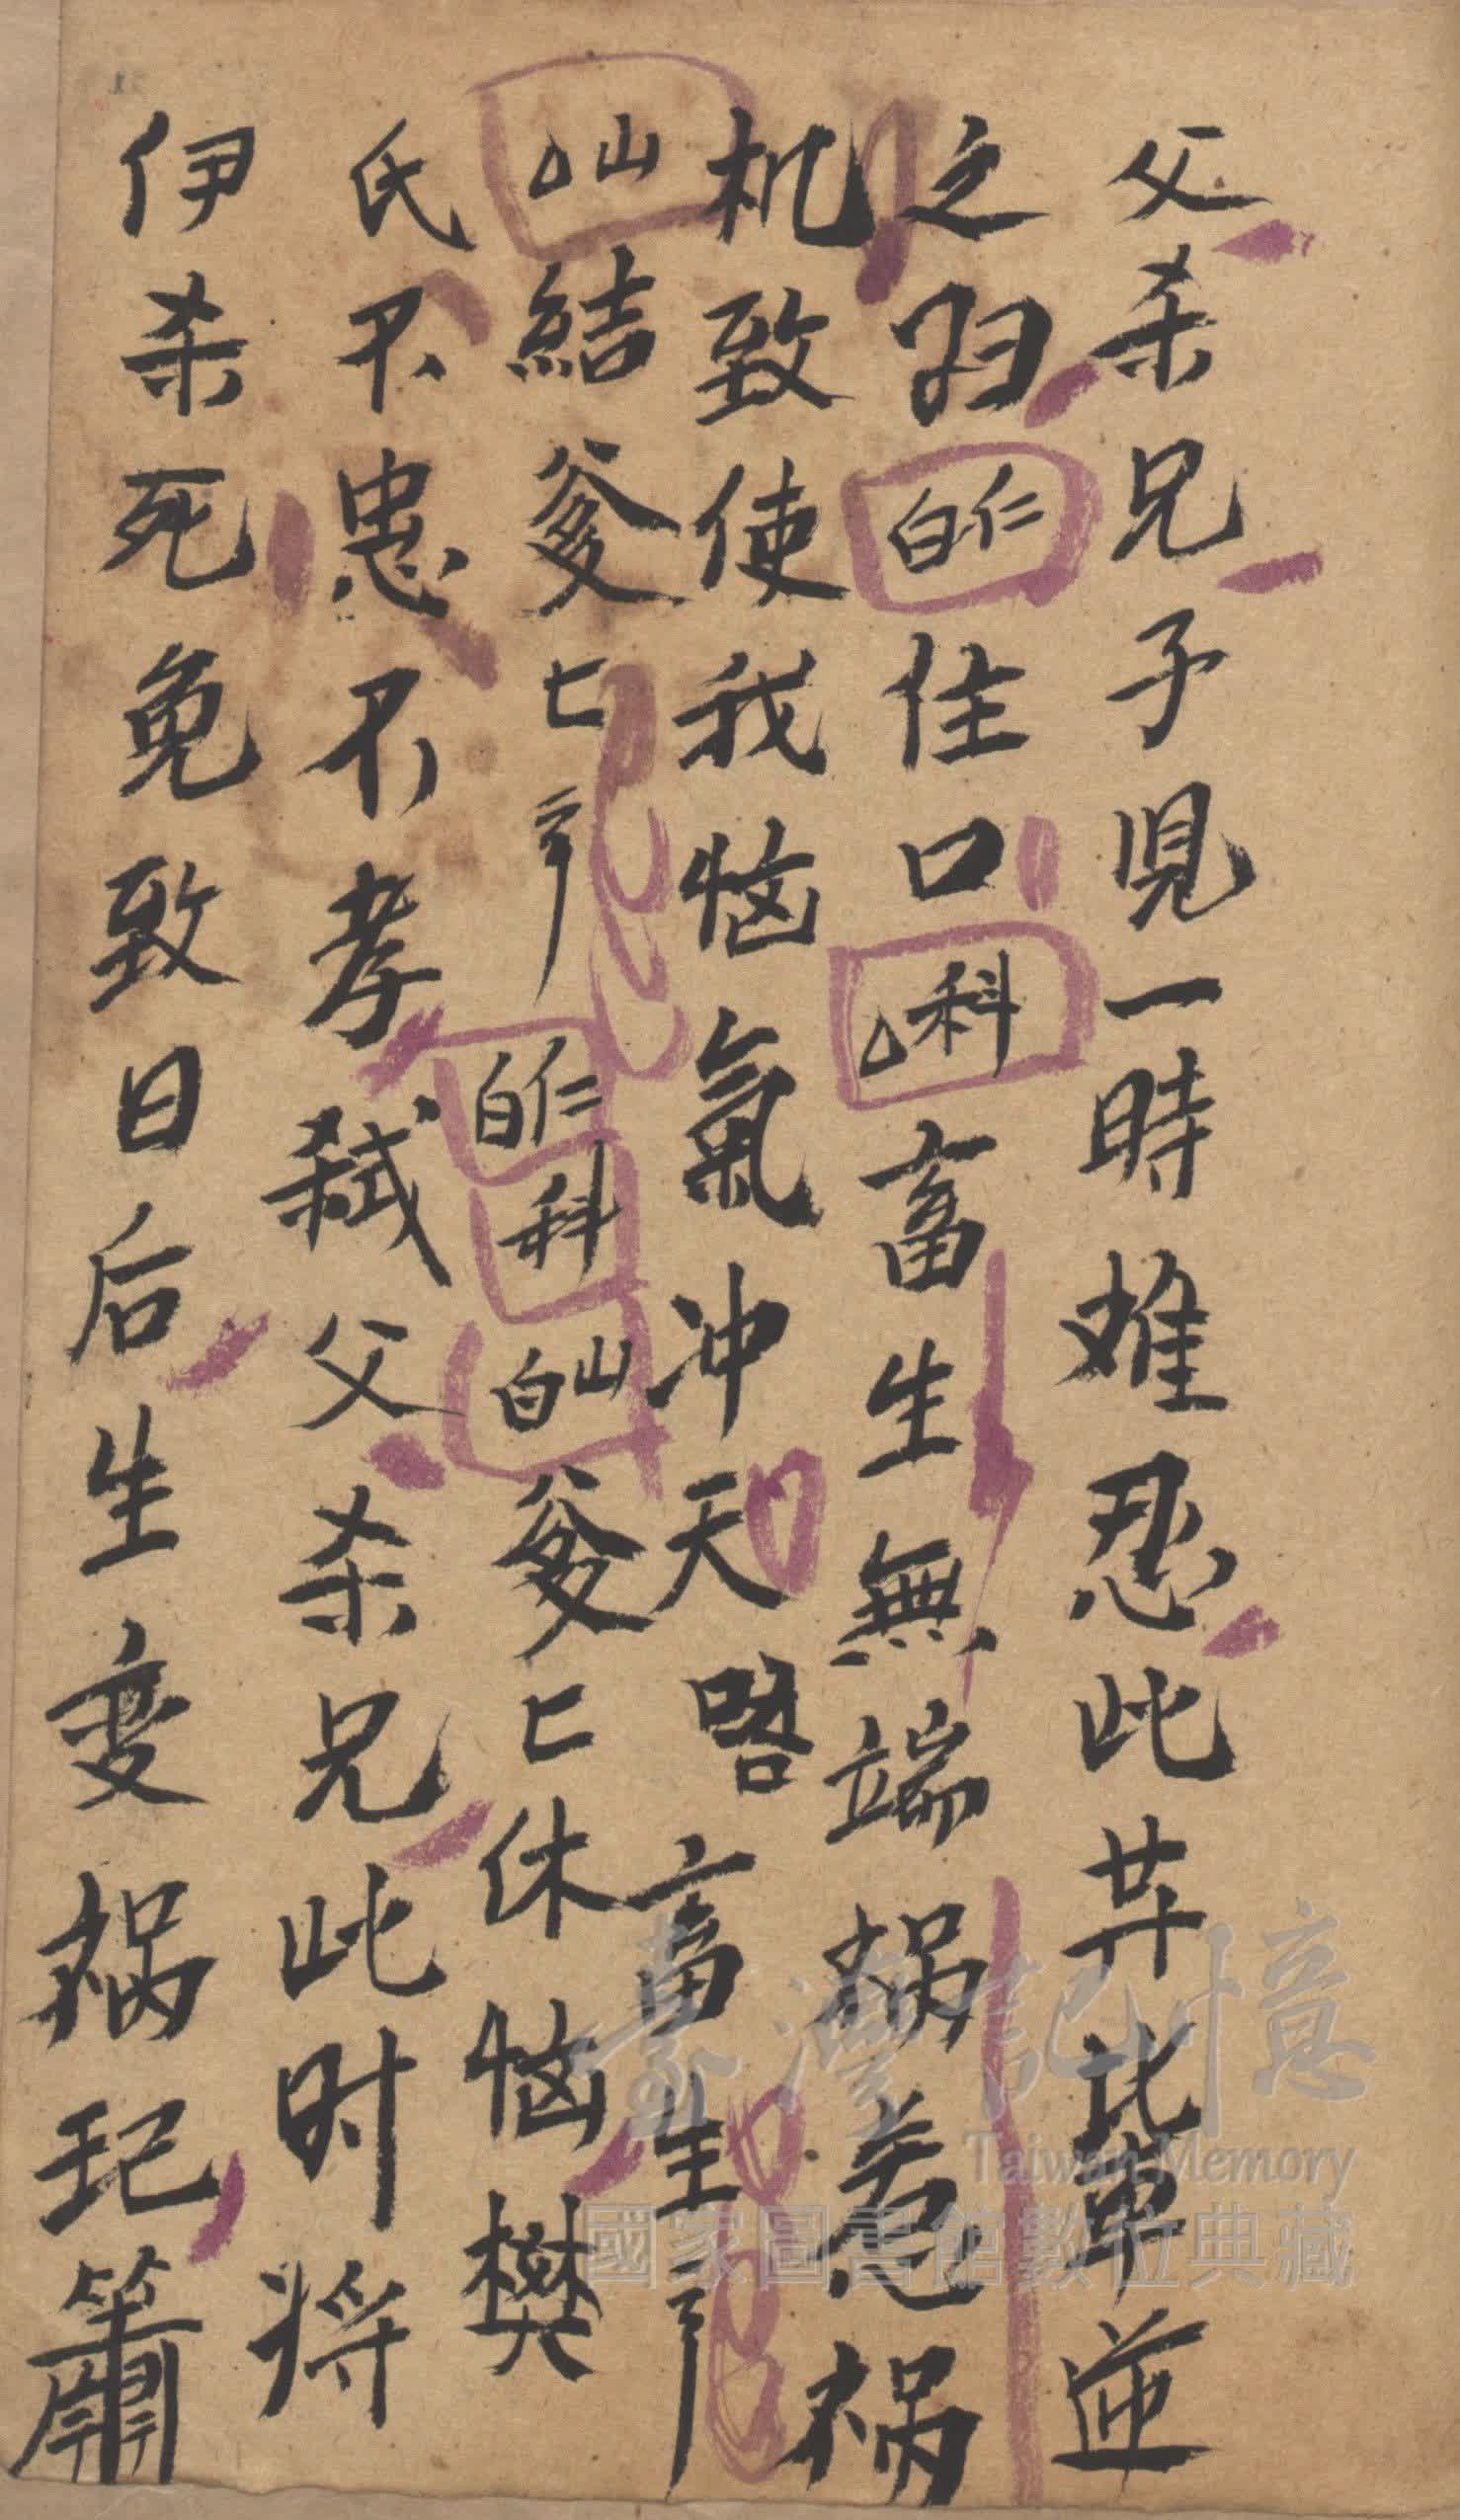 父杀兄子児一時难忍此廾軰逆
之归仁白住口科畜生無端祸惹祸
机致使我恼氣冲天唔畜生
山結爹匕仁白科山白爹匕休恼樊
氏不忠不孝弑父杀兄此时将
伊杀死免致日后生变祸玘簫
臺灣記憶
Taiwan Memory
國家圖書館數位典藏